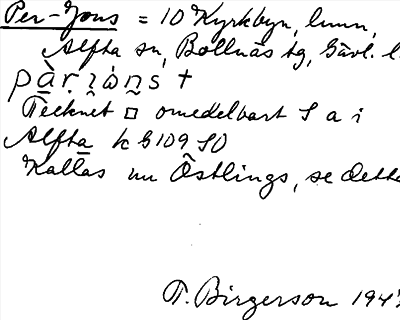 Per-Jons = 10 Kyrkbyn, hmn,
Alfta sn, Bollnäs tg, Gävl. l.
Tecknet □ omedelbart S a i
Alfta k G109 SO
Kallas nu Östlings, se detta
T. Birgerson 194